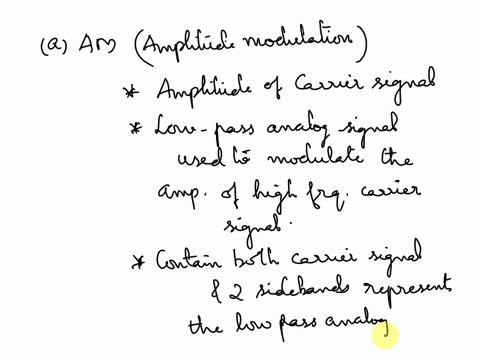 (a) AM (Amplitude modulation)
* Amplitude of Carrier signal
* Low-pass analog signal
used to modulate the
amp. of high frq. carrier
signal.
* Contain both carrier signal
& 2 sidebands represent
the low pass analog